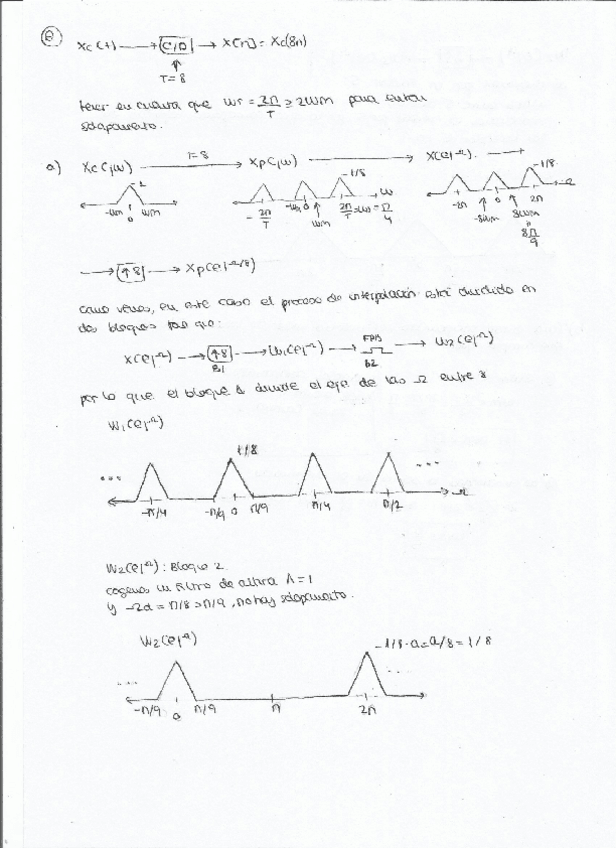 ⑧ Xc(t) → C/D → X[n] = Xc(8n)
T=8
tener en cuenta que Ws = 2π/T ≥ 2Wm para evitar
solapamiento.
a) Xc(jw) T=8 Xp(jw) X(ejΩ).
1 1/8 1/8
-Wm 0 Wm -2π/T -Wm 0 Wm 2π/T = Ws = π/4 W -2π -8Wm 0 8Wm 2π Ω
8π/9
→ ↑8 → Xp(ejΩ/8)
como vemos, en este caso el proceso de interpolación está dividido en
dos bloques tal que:
X(ejΩ) → ↑8 → W1(ejΩ) → FPB → W2(ejΩ)
B1 B2
por lo que el bloque 1 divide el eje de las Ω entre 8
W1(ejΩ)
1/8
... ...
-π/4 -π/9 0 π/9 π/4 π/2 Ω
W2(ejΩ): Bloque 2.
cogemos un filtro de altura A=1
y Ωd = π/8 > π/9, no hay solapamiento.
W2(ejΩ) 1/8·a = a/8 = 1/8
... ...
-π/9 0 π/9 π 2π